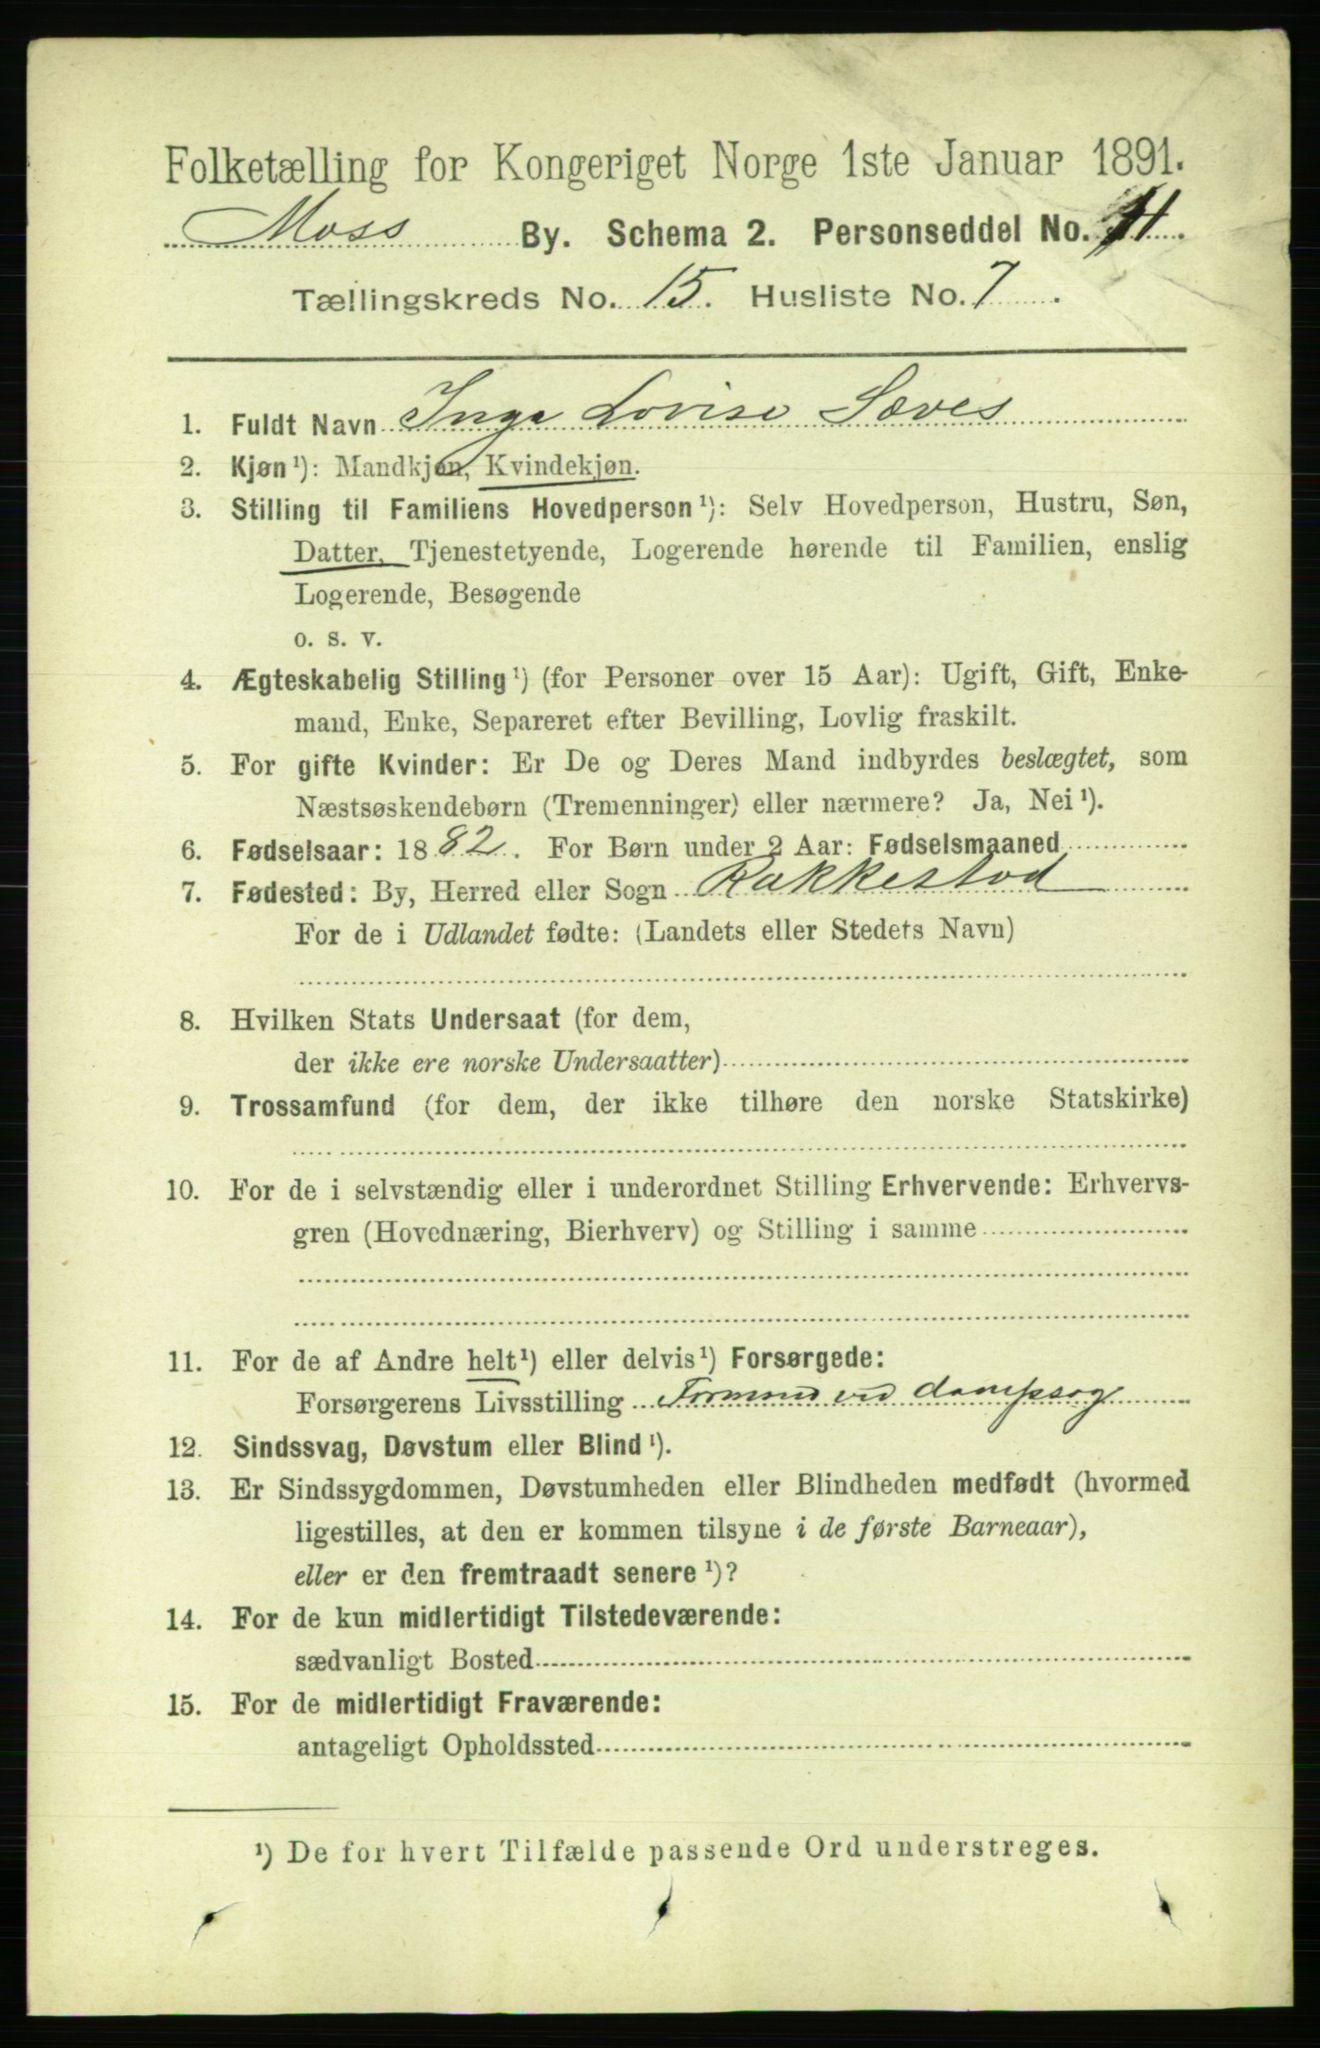 Folketælling for Kongeriget Norge 1ste Januar 1891.
Moss By. Schema 2. Personseddel No. 11.
Tællingskreds No. 15. Husliste No. 7.
1. Fuldt Navn Inga Lovise Sæves
2. Kjøn¹): Mandkjøn, Kvindekjøn.
3. Stilling til Familiens Hovedperson¹): Selv Hovedperson, Hustru, Søn,
Datter, Tjenestetyende, Logerende hørende til Familien, enslig
Logerende, Besøgende
o. s. v.
4. Ægteskabelig Stilling¹) (for Personer over 15 Aar): Ugift, Gift, Enke-
mand, Enke, Separeret efter Bevilling, Lovlig fraskilt.
5. For gifte Kvinder: Er De og Deres Mand indbyrdes beslægtet, som
Næstsøskendebørn (Tremenninger) eller nærmere? Ja, Nei¹).
6. Fødselsaar: 1882. For Børn under 2 Aar: Fødselsmaaned
7. Fødested: By, Herred eller Sogn Rakkestad
For de i Udlandet fødte: (Landets eller Stedets Navn)
8. Hvilken Stats Undersaat (for dem,
der ikke ere norske Undersaatter)
9. Trossamfund (for dem, der ikke tilhøre den norske Statskirke)
10. For de i selvstændig eller i underordnet Stilling Erhvervende: Erhvervs-
gren (Hovednæring, Bierhverv) og Stilling i samme
11. For de af Andre helt¹) eller delvis¹) Forsørgede:
Forsørgerens Livsstilling Formand ved dampsag
12. Sindssvag, Døvstum eller Blind¹).
13. Er Sindssygdommen, Døvstumheden eller Blindheden medfødt (hvormed
ligestilles, at den er kommen tilsyne i de første Barneaar),
eller er den fremtraadt senere¹)?
14. For de kun midlertidigt Tilstedeværende:
sædvanligt Bosted
15. For de midlertidigt Fraværende:
antageligt Opholdssted
¹) De for hvert Tilfælde passende Ord understreges.